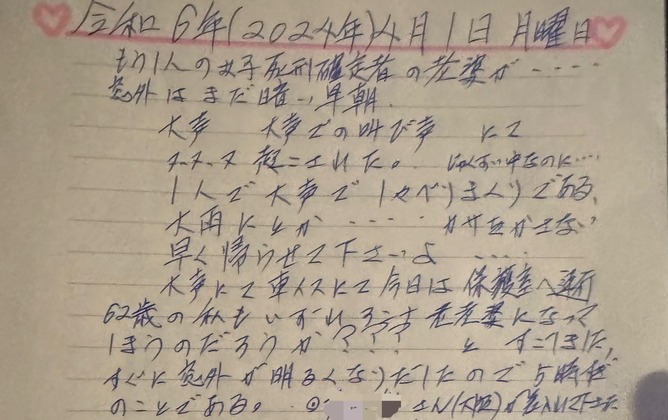 令和6年(2024年)4月1日 月曜日
もう1人の女子死刑確定者の老婆が‥‥
窓外はまだ暗い早朝.
大声 大声での叫び声 にて
起こされた。 じゅくすい中なのに…
1人で大声で1人しゃべりまくりである,
大雨にとか ‥‥ カサ
早く帰らせて下さいよ
大声にて車イスにて今日は保護室へ連行
62歳の私もいずれろう 老婆になって
しまうのだろうか??? と
すぐに窓外が明るくなりだしたので5時
のことである。 さん(大阪)が差入して下さた